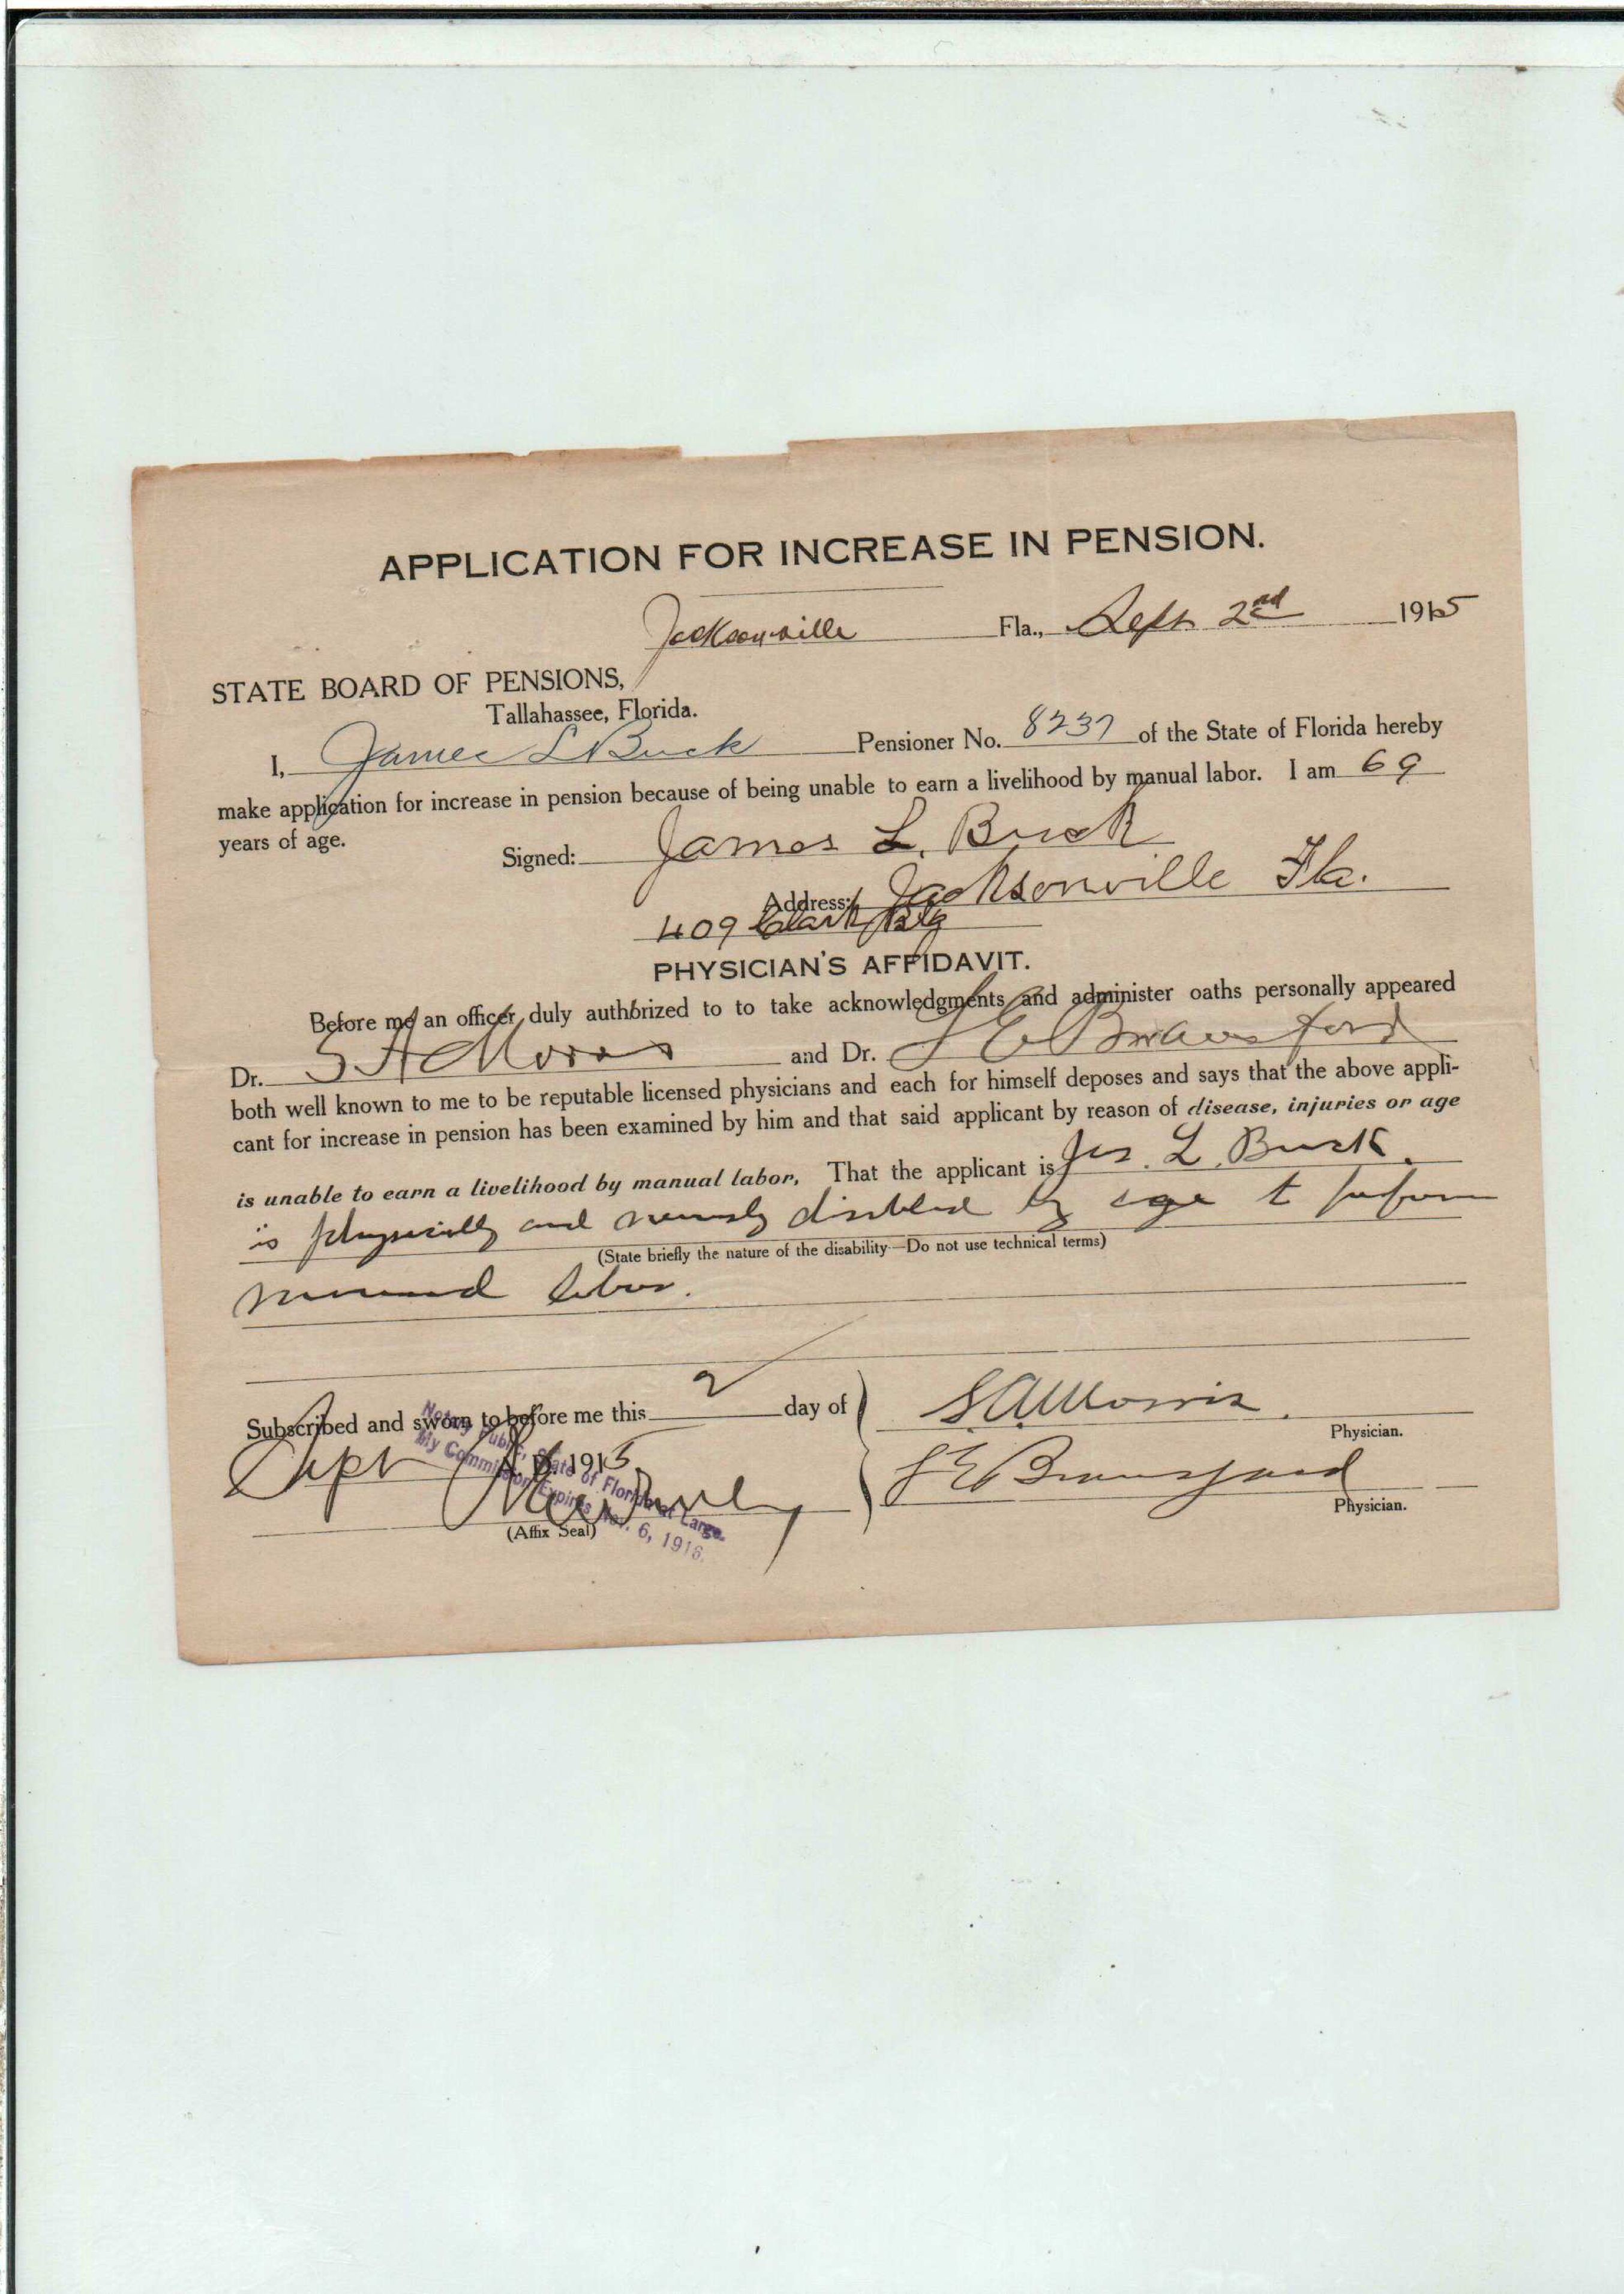 APPLICATION FOR INCREASE IN PENSION.
Jacksonville Fla., Sept 2nd 1915
STATE BOARD OF PENSIONS,
Tallahassee, Florida.
I, James L Buck Pensioner No. 8237 of the State of Florida hereby
make application for increase in pension because of being unable to earn a livelihood by manual labor. I am 69
years of age.
Signed: James L. Buck
Address: Jacksonville Fla.
409 Clark Bldg
PHYSICIAN'S AFFIDAVIT.
Before me an officer duly authorized to to take acknowledgments and administer oaths personally appeared
Dr. S A Morris and Dr. L E Bransford
both well known to me to be reputable licensed physicians and each for himself deposes and says that the above appli-
cant for increase in pension has been examined by him and that said applicant by reason of disease, injuries or age
is unable to earn a livelihood by manual labor, That the applicant is Jas. L. Buck.
is physically and disabled by age to perform
(State briefly the nature of the disability—Do not use technical terms)
manual labor.
Subscribed and sworn to before me this 2 day of
Sept A. D. 1915.
(Affix Seal)
Notary Public, State of Florida at Large.
My Commission Expires 6, 1916.
S. A. Morris.
Physician.
L E Bransford
Physician.